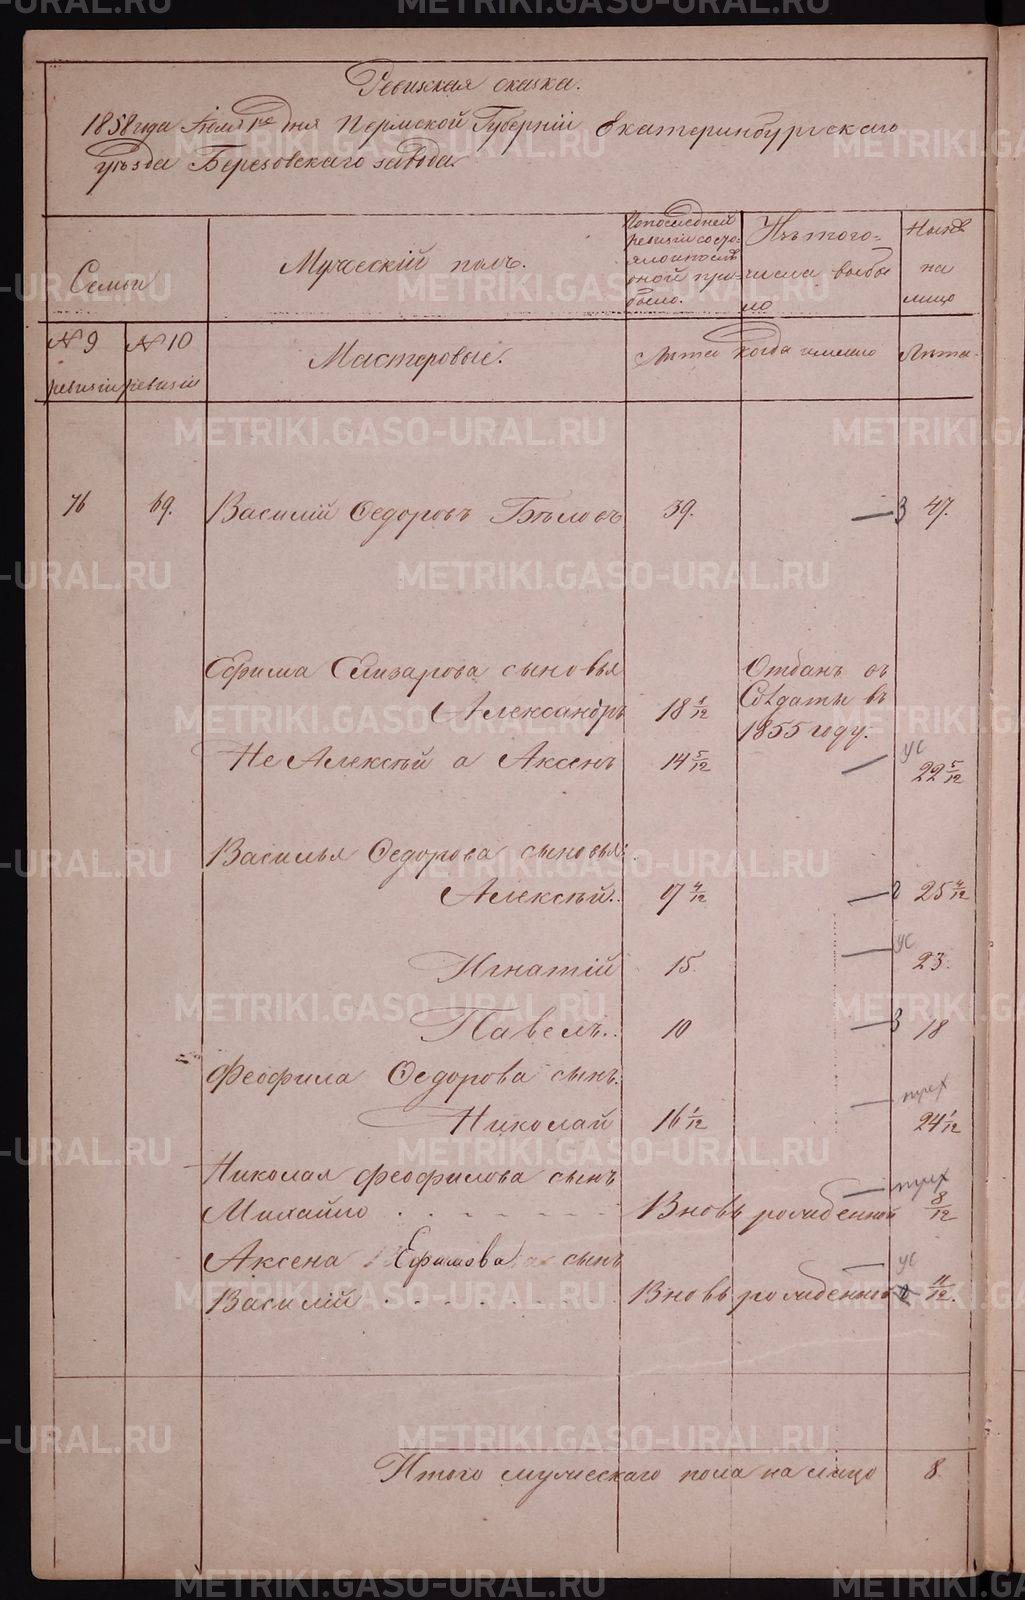 Ревизкая сказка.
1858 года Июля 1го дня Пермской Губерніи Екатеринбургскаго
уѣзда Березовскаго завода.
Семьи
Мужескій полъ.
По последней
ревизіи состо-
яло и после
оной при-
было.
Изъ того-
числа выбы
ло
Нынѣ
на
лицо
№ 9
ревизіи
№ 10
ревизіи
Мастеровые.
Лѣта
когда имяно
Лѣта.
76 69. Василій Федоровъ Бѣловъ 39. 3 47.
Ефима Елизарова сыновья
Александръ 18 1/12
Отданъ въ
Солдаты въ
1855 году.
Не Алексѣй а Аксенъ 14 5/12 ус 22 5/12
Василья Федорова сыновья:
Алексѣй. 17 4/12 2 25 4/12
Игнатій 15. ус 23.
Павелъ. 10 3 18
Феофила Федорова сынъ:
Николай 16 1/12 24 1/12
Николая Феофилова сынъ
Михайло Вновь рожденной 8/12
Аксена Ефимова сынъ ус
Василій Вновь рожденной 11/12.
Итого мужескаго пола на лицо 8.
METRIKI.GASO-URAL.RU